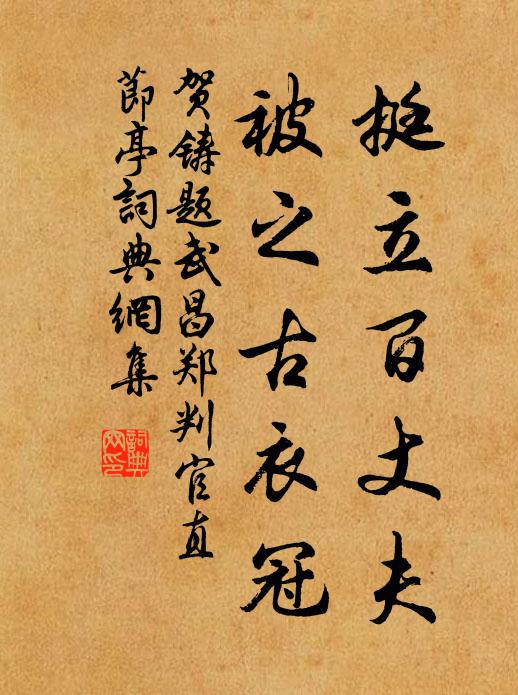 挺立百丈夫
被之古衣冠
贺鑄题武昌郑判官直
節亭詞典網集
詞典网印